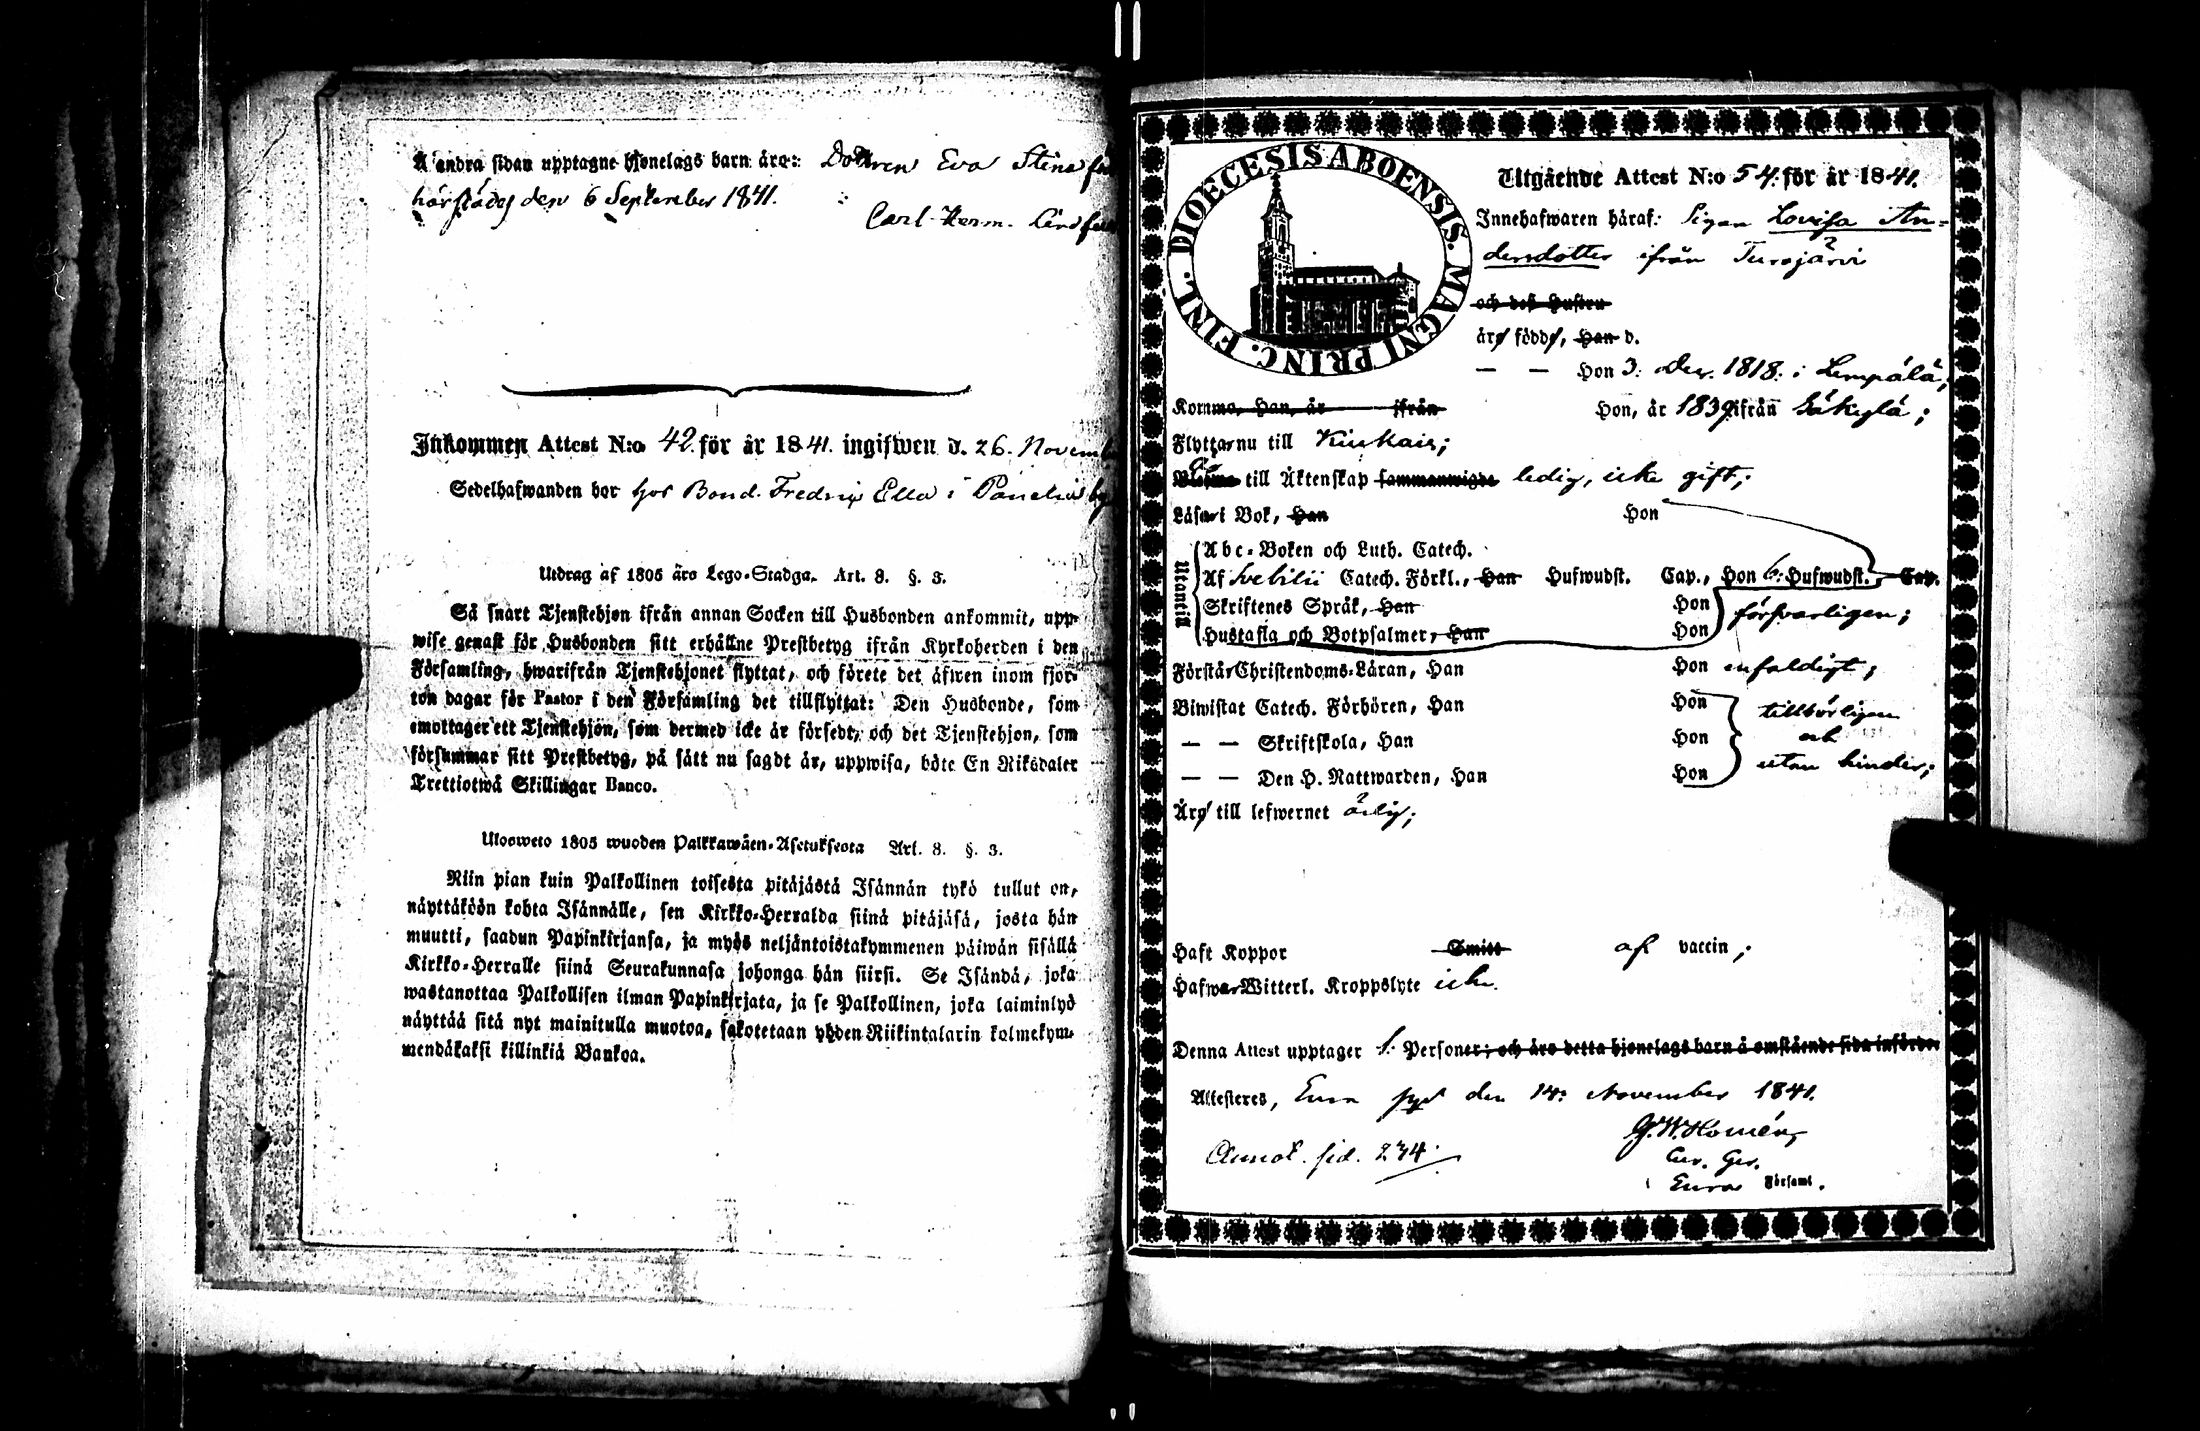 Å andra sidan upptagne hjonelags barn äro: Dottren Eva Stina
härstädes den 6 September 1841.
Carl Herm.
Inkommen Attest N:o 42. för år 1841. ingifwen d. 26. Novemb
Sedelhafwanden bor hos Bond. Fredrix Ella i Panelia by
Utdrag af 1805 års Lego-Stadga. Art. 8. §. 3.
Så snart Tjenstehjon ifrån annan Socken till Husbonden ankommit, upp-
wise genast för Husbonden sitt erhållne Prestbetyg ifrån Kyrkoherden i den
Församling, hwarifrån Tjenstehjonet flyttat, och förete det äfwen inom fjor-
ton dagar för Pastor i den Församling det tillflyttat: Den Husbonde, som
emottager ett Tjenstehjon, som dermed icke är försedt, och det Tjenstehjon, som
försummar sitt Prestbetyg, på sätt nu sagdt är, uppwisa, böte En Riksdaler
Trettiotwå Skillingar Banco.
Ulosweto 1805 wuoden Palkkawäen-Asetuksesta Art. 8. §. 3.
Niin pian kuin Palkollinen toisesta pitäjästä Isännän tykö tullut on,
näyttäköön kohta Isännälle, sen Kirkko-Herralda siinä pitäjäsä, josta hän
muutti, saadun Papinkirjansa, ja myös neljäntoistakymmenen päiwän sisällä
Kirkko-Herralle siinä Seurakunnasa johonga hän siirsi. Se Isändä, joka
wastanottaa Palkollisen ilman Papinkirjata, ja se Palkollinen, joka laiminlyö
näyttää sitä nyt mainitulla muotoa, sakotetaan yhden Riikintalarin kolmekym-
mendäkaksi killinkiä Bankoa.
DIOECESIS ABOENSIS. MAGNI PRINC. FINL.
Utgående Attest N:o 54. för år 1841.
Innehafwaren häraf: Pigan Lovisa An-
dersdotter ifrån Turajärvi
och dess Hustru
äro födde, Han d.
— — Hon 3. Dec. 1818. i Lempälä;
Komne, Han, år ifrån Hon, år 1839 ifrån Säkylä;
Flyttar nu till Kiukais;
till Äktenskap sammanwigde ledig, icke gift;
Läsa i Bok, Han Hon
Utantill
Abc-Boken och Luth. Catech.
Af Svebilii Catech. Förkl., Han Hufwudst. Cap., Hon 6. Hufwudst. Cap.
Skriftenes Språk, Han Hon försvarligen;
Hustafla och Botpsalmer, Han Hon
Förstår Christendoms-Läran, Han Hon enfaldigt;
Biwistat Catech. Förhören, Han Hon tillbörligen
— — Skriftskola, Han Hon och
— — Den H. Nattwarden, Han Hon utan hinder;
Äro till lefwernet ärlig;
Haft Koppor Smitt af vaccin;
Hafwa Witterl. Kroppslyte icke.
Denna Attest upptager 1. Personer; och äro detta hjonelags barn å omstående sida införde.
Attesteres, Eura den 14. November 1841.
G. W. Homén,
Annot. sid. 234.
Eura Församl.